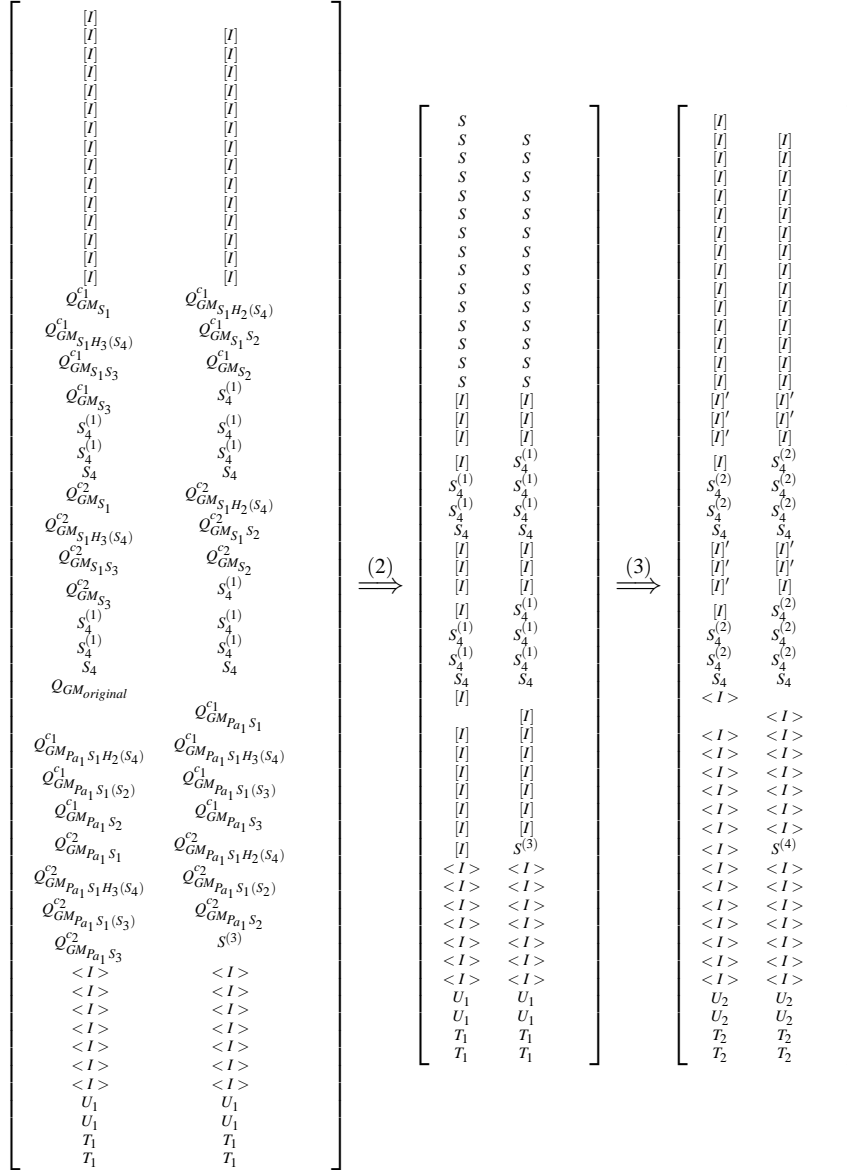 [I]
[I] [I]
[I] [I]
[I] [I]
[I] [I]
[I] [I]
[I] [I]
[I] [I]
[I] [I]
[I] [I]
[I] [I]
[I] [I]
[I] [I]
[I] [I]
[I] [I]
Q^{c_1}_{GM_{S_1}} Q^{c_1}_{GM_{S_1 H_2(S_4)}}
Q^{c_1}_{GM_{S_1 H_3(S_4)}} Q^{c_1}_{GM_{S_1 S_2}}
Q^{c_1}_{GM_{S_1 S_3}} Q^{c_1}_{GM_{S_2}}
Q^{c_1}_{GM_{S_3}} S_4^{(1)}
S_4^{(1)} S_4^{(1)}
S_4^{(1)} S_4^{(1)}
S_4 S_4
Q^{c_2}_{GM_{S_1}} Q^{c_2}_{GM_{S_1 H_2(S_4)}}
Q^{c_2}_{GM_{S_1 H_3(S_4)}} Q^{c_2}_{GM_{S_1 S_2}}
Q^{c_2}_{GM_{S_1 S_3}} Q^{c_2}_{GM_{S_2}}
Q^{c_2}_{GM_{S_3}} S_4^{(1)}
S_4^{(1)} S_4^{(1)}
S_4^{(1)} S_4^{(1)}
S_4 S_4
Q_{GM_{original}}
Q^{c_1}_{GM_{Pa_1 S_1}}
Q^{c_1}_{GM_{Pa_1 S_1 H_2(S_4)}} Q^{c_1}_{GM_{Pa_1 S_1 H_3(S_4)}}
Q^{c_1}_{GM_{Pa_1 S_1(S_2)}} Q^{c_1}_{GM_{Pa_1 S_1(S_3)}}
Q^{c_1}_{GM_{Pa_1 S_2}} Q^{c_1}_{GM_{Pa_1 S_3}}
Q^{c_2}_{GM_{Pa_1 S_1}} Q^{c_2}_{GM_{Pa_1 S_1 H_2(S_4)}}
Q^{c_2}_{GM_{Pa_1 S_1 H_3(S_4)}} Q^{c_2}_{GM_{Pa_1 S_1(S_2)}}
Q^{c_2}_{GM_{Pa_1 S_1(S_3)}} Q^{c_2}_{GM_{Pa_1 S_2}}
Q^{c_2}_{GM_{Pa_1 S_3}} S^{(3)}
< I > < I >
< I > < I >
< I > < I >
< I > < I >
< I > < I >
< I > < I >
< I > < I >
U_1 U_1
U_1 U_1
T_1 T_1
T_1 T_1
(2) ⟹
S
S S
S S
S S
S S
S S
S S
S S
S S
S S
S S
S S
S S
S S
S S
[I] [I]
[I] [I]
[I] [I]
[I] S_4^{(1)}
S_4^{(1)} S_4^{(1)}
S_4^{(1)} S_4^{(1)}
S_4 S_4
[I] [I]
[I] [I]
[I] [I]
[I] S_4^{(1)}
S_4^{(1)} S_4^{(1)}
S_4^{(1)} S_4^{(1)}
S_4 S_4
[I]
[I]
[I] [I]
[I] [I]
[I] [I]
[I] [I]
[I] [I]
[I] [I]
[I] S^{(3)}
< I > < I >
< I > < I >
< I > < I >
< I > < I >
< I > < I >
< I > < I >
< I > < I >
U_1 U_1
U_1 U_1
T_1 T_1
T_1 T_1
(3) ⟹
[I]
[I] [I]
[I] [I]
[I] [I]
[I] [I]
[I] [I]
[I] [I]
[I] [I]
[I] [I]
[I] [I]
[I] [I]
[I] [I]
[I] [I]
[I] [I]
[I] [I]
[I]′ [I]′
[I]′ [I]′
[I]′ [I]
[I] S_4^{(2)}
S_4^{(2)} S_4^{(2)}
S_4^{(2)} S_4^{(2)}
S_4 S_4
[I]′ [I]′
[I]′ [I]′
[I]′ [I]
[I] S_4^{(2)}
S_4^{(2)} S_4^{(2)}
S_4^{(2)} S_4^{(2)}
S_4 S_4
< I >
< I >
< I > < I >
< I > < I >
< I > < I >
< I > < I >
< I > < I >
< I > < I >
< I > S^{(4)}
< I > < I >
< I > < I >
< I > < I >
< I > < I >
< I > < I >
< I > < I >
< I > < I >
U_2 U_2
U_2 U_2
T_2 T_2
T_2 T_2